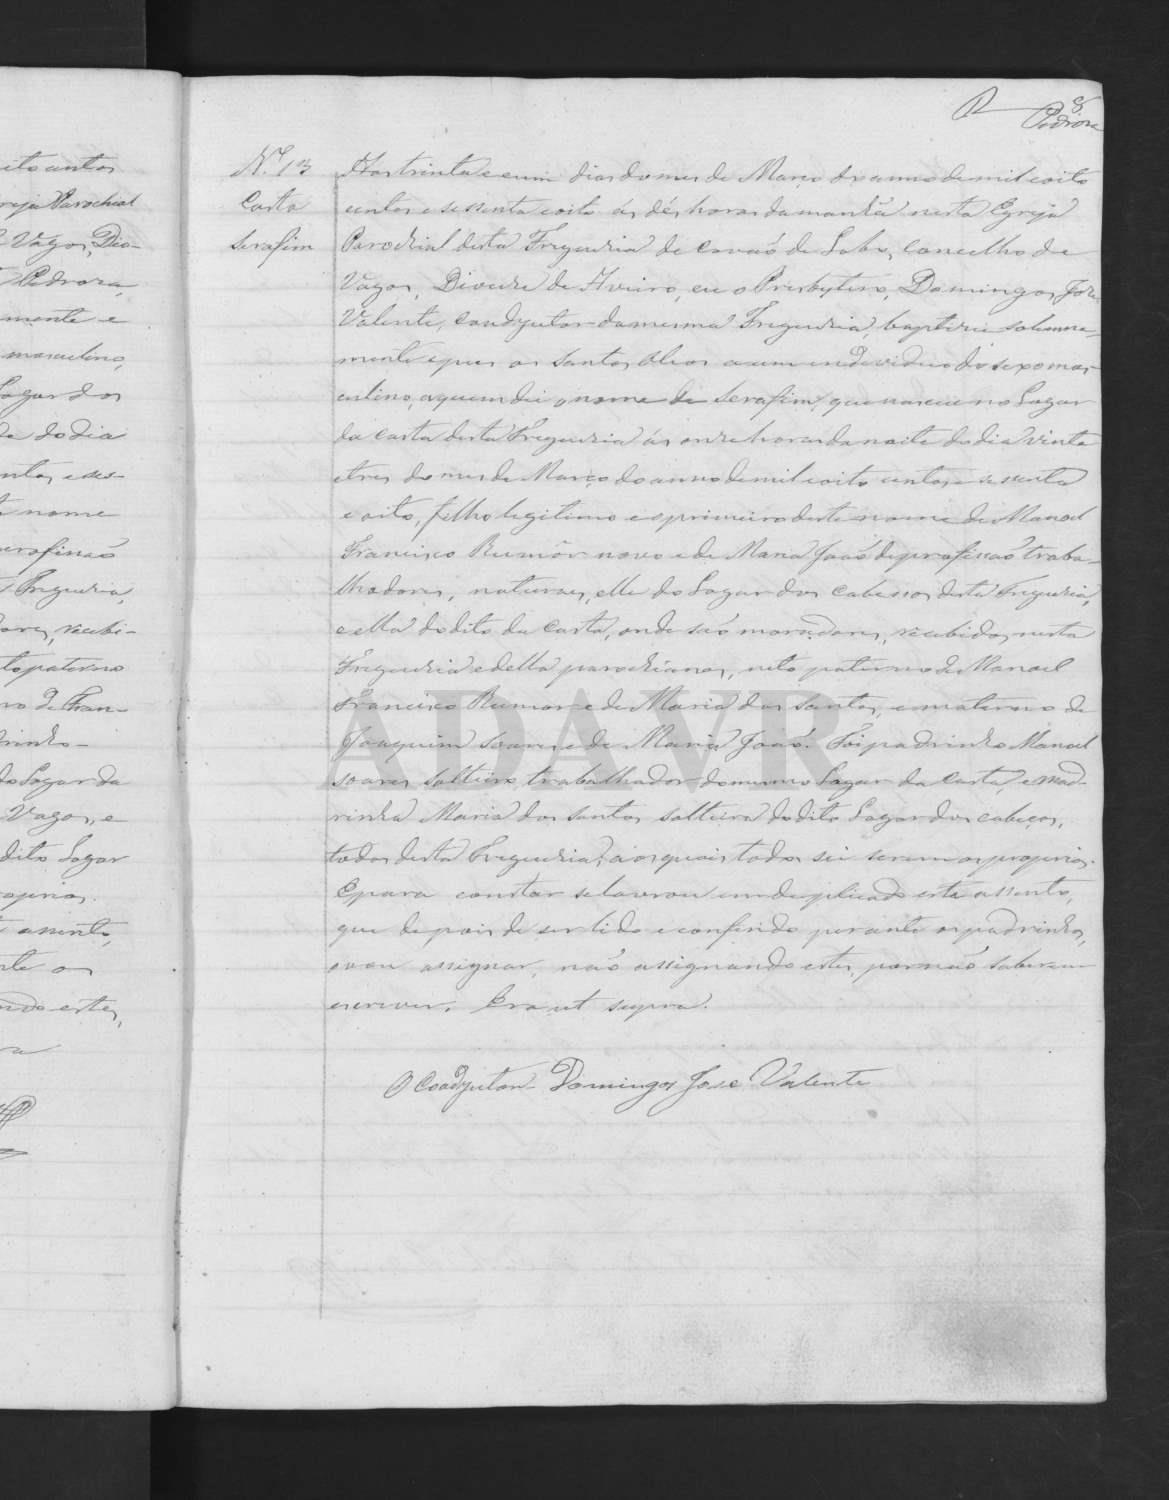 8
Pedroza
N.º 13
Costa
Serafim
Aos trinta e um dias do mes de Março do anno de mil oito
centos e sessenta e oito ás dés horas da manhã nesta Egreja
Parochial desta Freguezia de Covaõ de Lobo, Concelho de
Vagos, Diocese de Aveiro, eu o Presbytero, Domingos Jose
Valente, Coadjutor da mesma Freguezia, baptizei solemne-
mente e puz os Santos Oleos a um individuo do sexo mas-
culino, a quem dei o nome de Serafim, que nasceu no Logar
da Costa desta Freguezia ás onze horas da noite do dia vinte
e tres do mes de Março do anno de mil oito centos e sessenta
e oito, filho legitimo e o primeiro deste nome de Manoel
Francisco Rumôr novo e de Maria Joaõ de profissaõ traba-
lhadores, naturaes, elle do Logar dos Cabessos desta Freguezia,
e ella do dito da Costa, onde saõ moradores, recebidos nesta
Freguezia e della parochianos, neto paterno de Manoel
Francisco Rumor e de Maria dos Santos, e materno de
Joaquim Soares e de Maria Joaõ. Foi padrinho Manoel
Soares solteiro, trabalhador do mesmo Logar da Costa, e mad-
rinha Maria dos Santos solteira do dito Logar dos Cabeços,
todos desta Freguezia, aos quais todos sei serem os proprios.
E para constar se lavrou em duplicado este assento,
que depois de ser lido e conferido perante os padrinhos,
o vou assignar, naõ assignando estes, por naõ saberem
escrever. Era ut supra.
O Coadjutor Domingos Jose Valente
ito centos
reja Parochial
Vagos, Dio-
Pedroza,
mente e
masculino,
Logar dos
do dia
ntos e ses-
nome
profissaõ
Freguezia,
dores, recebi-
to paterno
no de Fran-
drinho
do Logar da
Vagos, e
dito Logar
roprios.
assento,
nte os
ndo estes,
ADAVR